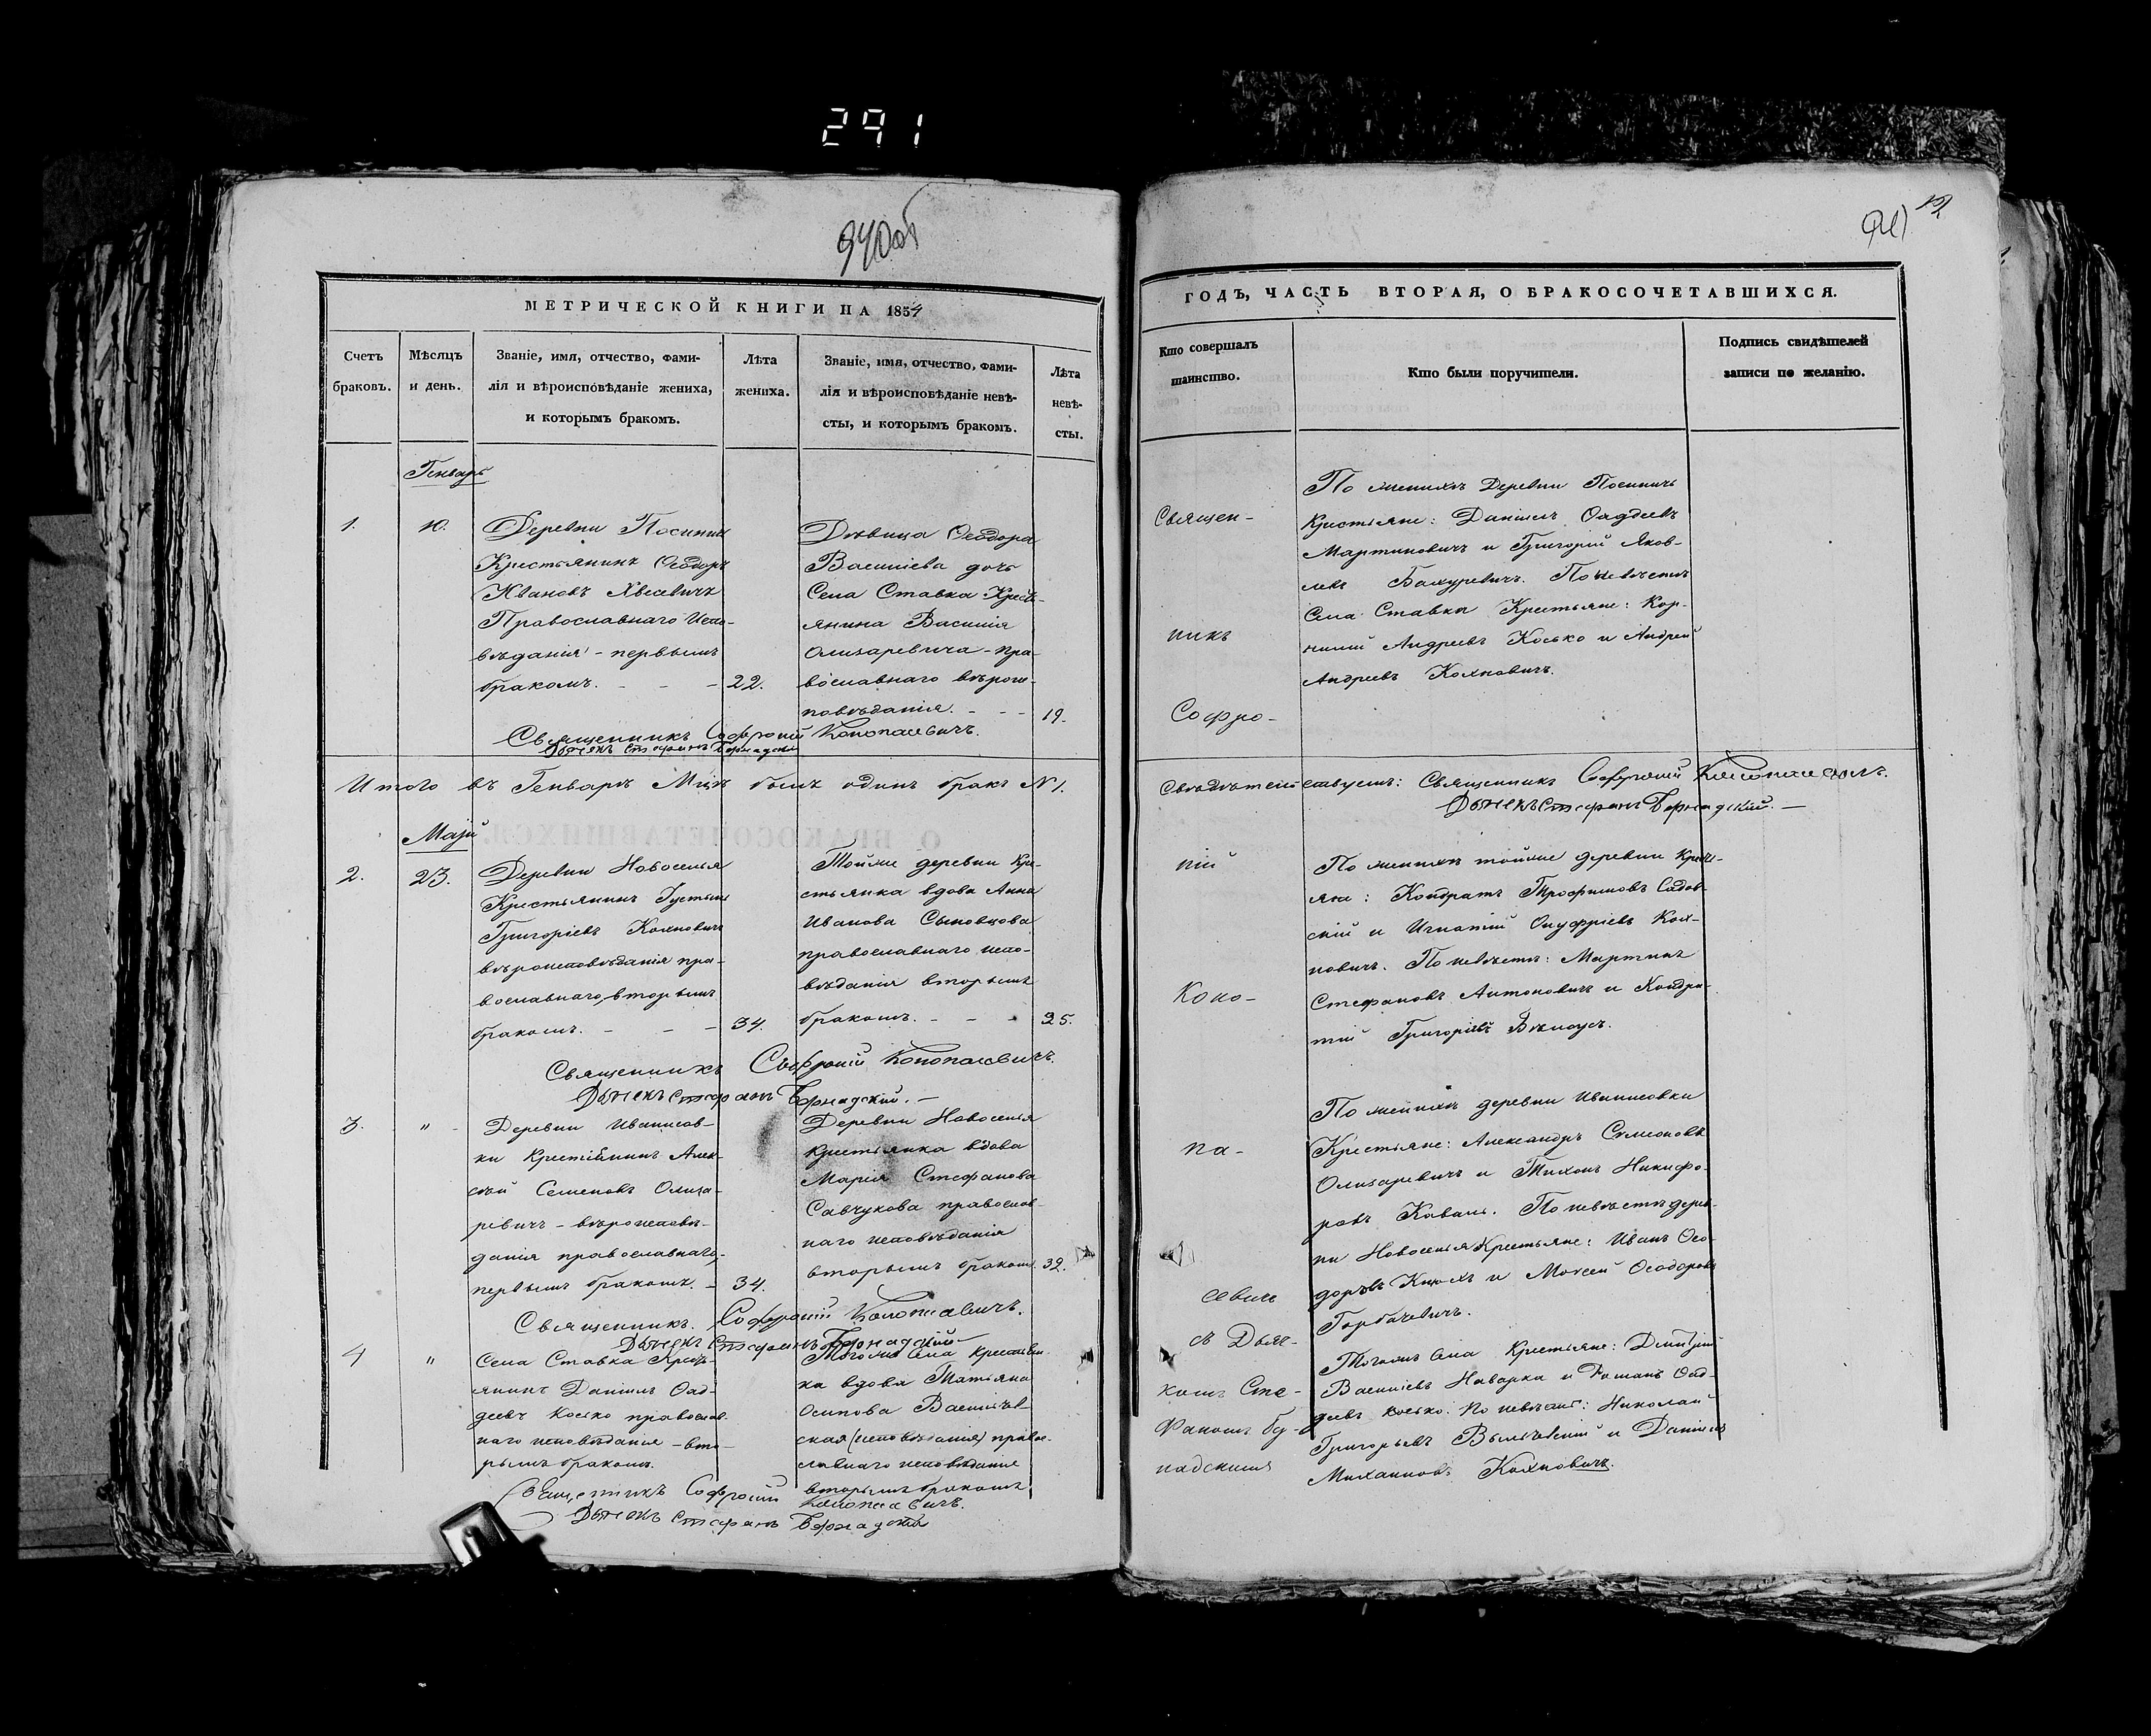 291
940об
МЕТРИЧЕСКОЙ КНИГИ НА 1854
Счетъ браковъ.
Мѣсяцъ и день.
Званіе, имя, отчество, фами-
лія и вѣроисповѣданіе жениха,
и которымъ бракомъ.
Лѣта жениха.
Званіе, имя, отчество, фами-
лія и вѣроисповѣданіе невѣ-
сты, и которымъ бракомъ.
Лѣта невѣ-
сты.
Генварь
1.
10.
Деревни Посеничь
Крестьянинъ Ѳеодоръ
Ивановъ
Православнаго Испо-
вѣданія - первымъ
бракомъ. - - -
22.
Дѣвица Ѳеодора
Василіева дочь
Села Ставка Крест-
янина Василія
Олизаревича - пра-
вославнаго вѣроис-
повѣданія. - - -
19.
Священникъ Софроній Конопасевичъ.
Дьячекъ Стефанъ Бернадскій
Итого въ Генварѣ Мцѣ былъ одинъ бракъ №1.
Маій
2.
23.
Деревни Новоселья
Крестьянинъ Іустинъ
Григоріевъ Колновичъ
вѣроисповѣданія пра-
вославнаго, вторымъ
бракомъ. - - -
34.
Тойже деревни Кре-
стьянка вдова Анна
Иванова Сыновцова
православнаго испо-
вѣданія вторымъ
бракомъ. - - -
35.
Священникъ Софроній Конопасевичъ.
Дьячекъ Стефанъ Бернадскій. -
3.
"
Деревни Иванисов-
ки Крестьянинъ Алек-
сѣй Семеновъ Олиза-
ревичъ - вѣроисповѣ-
данія православнаго,
первымъ бракомъ. -
34.
Деревни Новоселья
крестьянка вдова
Марія Стефанова
Савчукова православ-
наго исповѣданія
вторымъ бракомъ.
32.
Священникъ. Софроній Конопасевичъ.
Дьячекъ Стефанъ Бернадскій -
4
"
Села Ставка Крест-
янинъ Даніилъ Ѳад-
деевъ Косько православ-
наго исповѣданія - вто-
рымъ бракомъ.
Тогожъ Села крестьян-
ка вдова Татьяна
Осипова Василев-
ская (исповѣданія) право-
славнаго исповѣданія
вторымъ бракомъ
Священникъ Софроній Конопасевичъ.
Дьячекъ Стефанъ Бернадскій
ГОДЪ, ЧАСТЬ ВТОРАЯ, О БРАКОСОЧЕТАВШИХСЯ.
Кто совершалъ
таинство.
Кто были поручители.
Подпись свидѣтелей
записи по желанію.
Священ-
никъ
Софро-
По женихѣ Деревни Посеничь
Крестьяне: Даніилъ Ѳаддеевъ
Мартиновичъ и Григорій Яков-
левъ Бахуревичъ. По невѣстѣ
Села Ставка Крестьяне: Кор-
нилій Андреевъ Косько и Андрей
Андреевъ Колновичъ.
Свѣдѣтельствуетъ: Священникъ Софроній Конопасевичъ.
Дьячекъ Стефанъ Бернадскій. -
ній
Коно-
По женихѣ тойже деревни Крест-
яне: Кондратъ Трофимовъ Садов-
скій и Игнатій Онуфріевъ Кол-
новичъ. По невѣстѣ: Мартинъ
Стефановъ Антоновичъ и Кондра-
тій Григоріевъ Бѣлоусъ.
па-
севичъ
По женихѣ деревни Иванисовки
Крестьяне: Александръ Симеоновъ
Олизаревичъ и Тихонъ Никифо-
ровъ Коваль. По невѣстѣ дерев-
ни Новоселья Крестьяне: Иванъ Ѳео-
доровъ и Моисей Ѳеодоровъ
Горбачевичъ.
съ Дьяч-
комъ Сте-
фаномъ Бер-
надскимъ
Тогожъ Села Крестьяне: Димитрій
Василіевъ Наварка и Романъ Ѳад-
деевъ Косько. По невѣстѣ: Николай
Григорьевъ и Даніилъ
Михаиловъ Колновичъ.